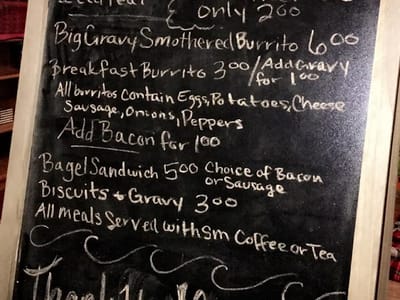 only 2.00
Big Gravy Smothered Burrito 6.00
Breakfast Burrito 3.00 / Add Gravy for 1.00
All burritos contain Eggs, Potatoes, Cheese
Sausage, Onions, Peppers
Add Bacon for 1.00
Bagel Sandwich 5.00 Choice of Bacon or Sausage
Biscuits + Gravy 3.00
All meals Served with Sm Coffee or Tea